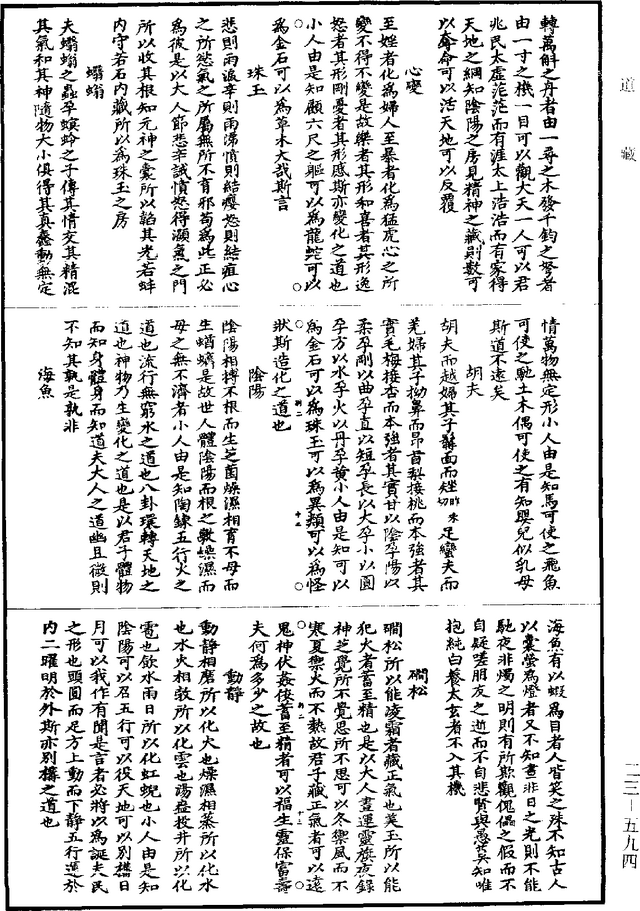 道藏
轉萬斛之舟者由一尋之木發千鈞之弩者
由一寸之機一目可以觀大天一人可以君
兆民太虛茫茫而有涯太上浩浩而有家得
天地之綱知陰陽之房見精神之藏則數可
以奪命可以活天地可以反覆
心變
至婬者化為婦人至暴者化為猛虎心之所
變不得不變是故樂者其形和喜者其形逸
怒者其形剛憂者其形慼斯亦變化之道也
小人由是知顧六尺之軀可以為龍蛇可以
為金石可以為草木大哉斯言
珠玉
悲則雨淚辛則雨涕憤則結癭怒則結疽心
之所慾氣之所屬無所不育邪苟為此正必
為彼是以大人節悲辛誡憤怒得灝氣之門
所以收其根知元神之囊所以韜其光若蚌
內守若石內藏所以為珠玉之房
蠮螉
夫蠮螉之蟲孕螟蛉之子傳其情交其精混
其氣和其神隨物大小俱得其真蠢動無定
情萬物無定形小人由是知馬可使之飛魚
可使之馳土木偶可使之有知嬰兒似乳母
斯道不遠矣
胡夫
胡夫而越婦其子髯面而矬昨禾切足蠻夫而
羌婦其子拗鼻而昂首梨接桃而本強者其
實毛梅接杏而本強者其實甘以陰孕陽以
柔孕剛以曲孕直以短孕長以大孕小以圓
孕方以水孕火以丹孕黃小人由是知可以
為金石可以為珠玉可以為異類可以為怪
狀斯造化之道也
陰陽
陰陽相搏不根而生芝菌燥濕相育不母而
生蝤蠐是故世人體陰陽而根之斆燥濕而
母之無不濟者小人由是知陶鍊五行火之
道也流行無窮水之道也八卦環轉天地之
道也神物乃生變化之道也是以君子體物
而知身體身而知道夫大人之道幽且微則
不知其孰是孰非
海魚
海魚有以蝦為目者人皆笑之殊不知古人
以囊螢為燈者又不知晝非日之光則不能
馳夜非燭之明則有所欺觀傀儡之假而不
自疑嗟朋友之逝而不自悲賢與愚莫知唯
抱純白養太玄者不入其機
磵松
磵松所以能凌霜者藏正氣也美玉所以能
犯火者蓄至精也是以大人晝運靈旗夜錄
神芝覺所不覺思所不思可以冬禦風而不
寒夏禦火而不熱故君子藏正氣者可以遠
鬼神伏姦佞蓄至精者可以福生靈保富壽
夫何為多少之故也
動靜
動靜相磨所以化火也燥濕相蒸所以化水
也水火相勃所以化雲也湯盎投井所以化
雹也飲水雨日所以化虹蜺也小人由是知
陰陽可以召五行可以役天地可以別構日
月可以我作有聞是言者必將以為誕夫民
之形也頭圓而足方上動而下靜五行運於
內二曜明於外斯亦別構之道也
二三—五九四